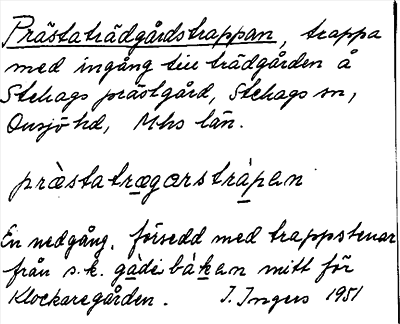 Prästaträdgårdstrappan, trappa
med ingång till trädgården å
Stehags prästgård, Stehags sn,
Onsjö hd, Mhs län.
præ̀statrægarstràpen
En nedgång, försedd med trappstenar
från s.k. gàdebàken mitt för
Klockaregården. I. Ingers 1951